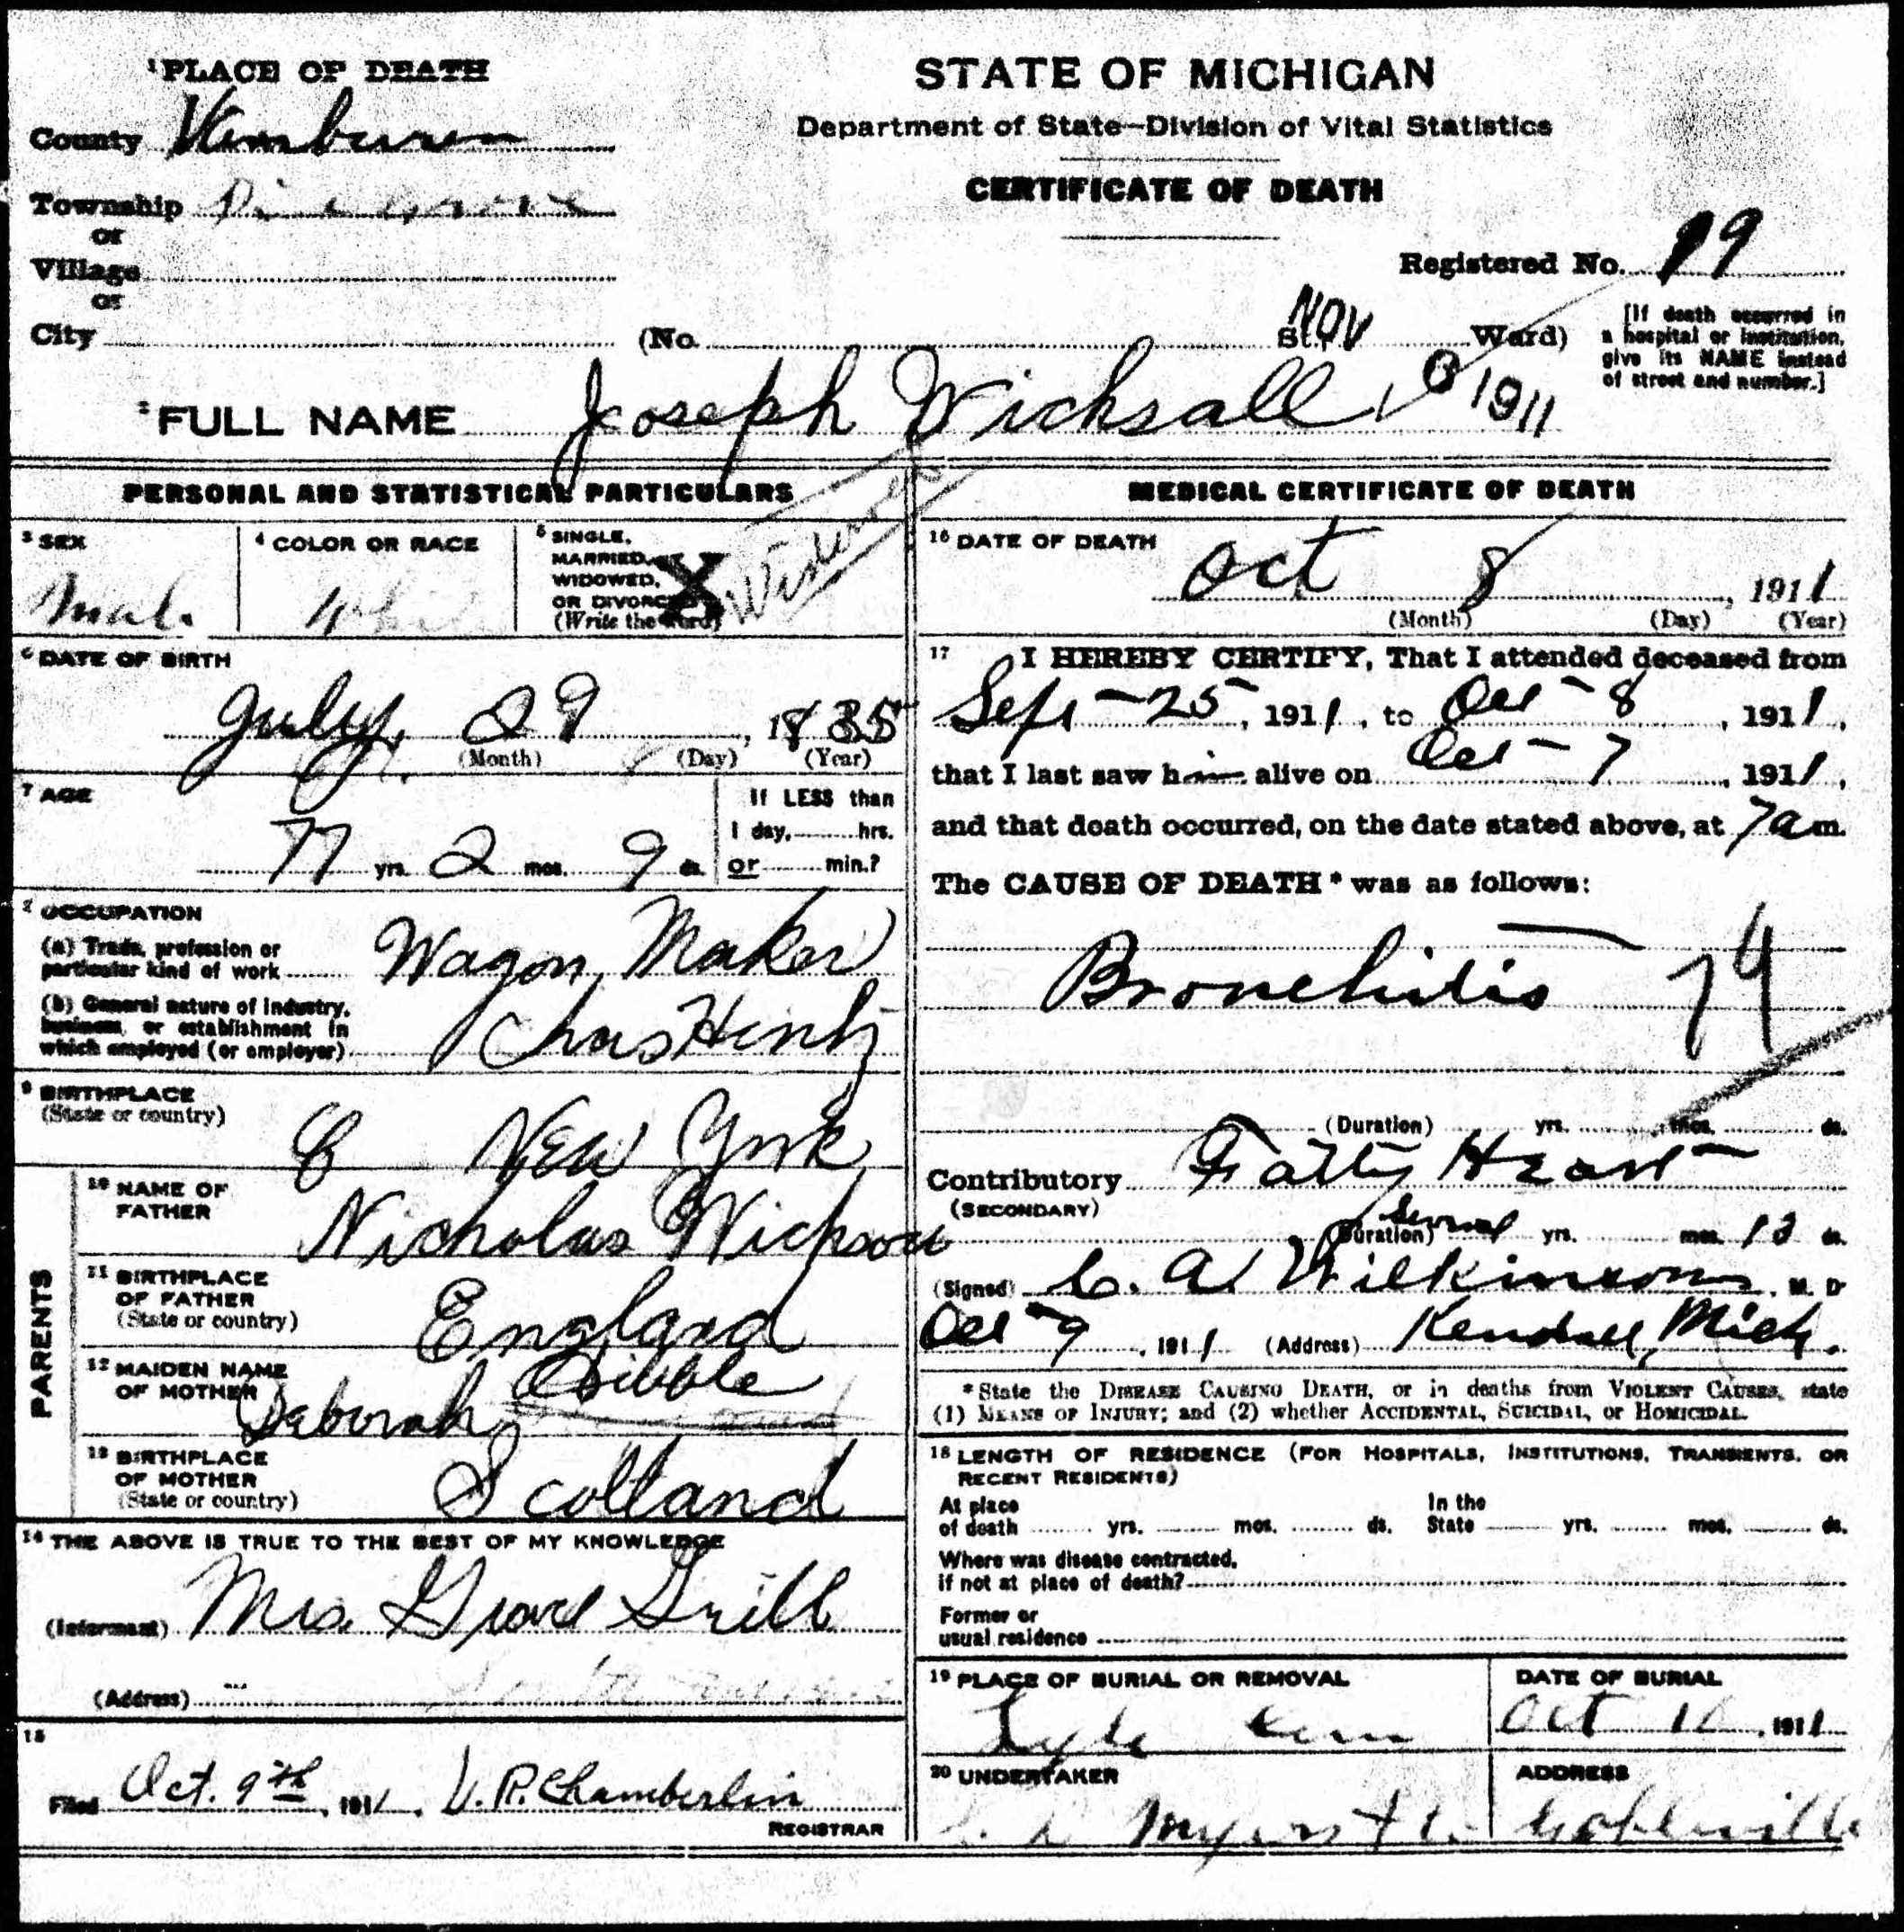 1 PLACE OF DEATH
STATE OF MICHIGAN
Department of State—Division of Vital Statistics
CERTIFICATE OF DEATH
County Vanburen
Township Pine Grove
or
Village
or
City (No. St., Ward)
Registered No. 19
[If death occurred in
a hospital or institution,
give its NAME instead
of street and number.]
NOV 1911
2 FULL NAME Joseph Wicksall
PERSONAL AND STATISTICAL PARTICULARS
3 SEX
Male
4 COLOR OR RACE
White
5 SINGLE,
MARRIED,
WIDOWED,
OR DIVORCED
(Write the word)
X Widowed
6 DATE OF BIRTH
July 29, 1835
(Month) (Day) (Year)
7 AGE
77 yrs. 2 mos. 9 ds.
If LESS than
1 day, hrs.
or min.?
8 OCCUPATION
(a) Trade, profession or
particular kind of work Wagon Maker
(b) General nature of industry,
business, or establishment in
which employed (or employer) Chas
9 BIRTHPLACE
(State or country)
New York
PARENTS
10 NAME OF
FATHER
Nicholas
11 BIRTHPLACE
OF FATHER
(State or country)
England
12 MAIDEN NAME
OF MOTHER
Deborah Dibble
13 BIRTHPLACE
OF MOTHER
(State or country)
Scotland
14 THE ABOVE IS TRUE TO THE BEST OF MY KNOWLEDGE
(Informant) Mrs
(Address)
15
Filed Oct. 9th, 1911. V. P. Chamberlin
REGISTRAR
MEDICAL CERTIFICATE OF DEATH
16 DATE OF DEATH
Oct 8, 1911
(Month) (Day) (Year)
17 I HEREBY CERTIFY, That I attended deceased from
Sept - 25, 1911, to Oct - 8, 1911,
that I last saw him alive on Oct - 7, 1911,
and that death occurred, on the date stated above, at 7 a m.
The CAUSE OF DEATH* was as follows:
Bronchitis 74
(Duration) yrs. mos. ds.
Contributory Fatty Heart
(SECONDARY)
(Duration) several yrs. mos. 13 ds.
(Signed) C. A. Wilkinson, M. D
Oct - 9, 1911 (Address) Kendall, Mich.
*State the DISEASE CAUSING DEATH, or in deaths from VIOLENT CAUSES, state
(1) MEANS OF INJURY; and (2) whether ACCIDENTAL, SUICIDAL, or HOMICIDAL.
18 LENGTH OF RESIDENCE (FOR HOSPITALS, INSTITUTIONS, TRANSIENTS, OR
RECENT RESIDENTS)
At place
of death yrs. mos. ds. In the
State yrs. mos. ds.
Where was disease contracted,
if not at place of death?
Former or
usual residence
19 PLACE OF BURIAL OR REMOVAL
Lyle Cem
DATE OF BURIAL
Oct 10, 1911
20 UNDERTAKER
Myers
ADDRESS
Gobleville